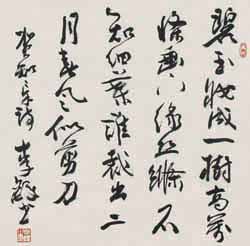 碧玉妝成一樹高萬
條垂下綠絲縧不
知細葉誰裁出二
月春風似剪刀
賀知章詩 李書